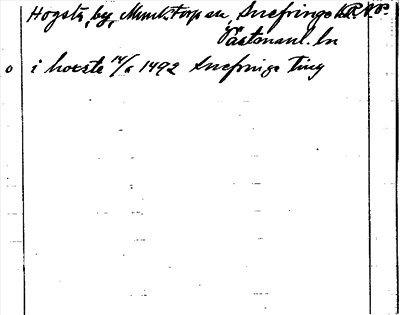 Hogsta, by, Munktorp sn, Snefringe hd
Västmanl. ln
o i hoxste 14/6 1492 Snefringe ting